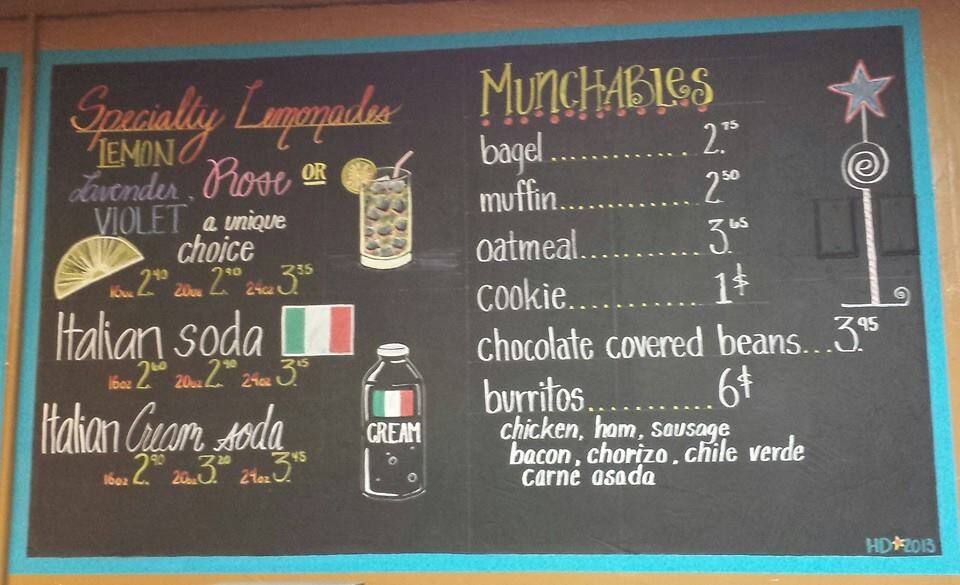 Specialty Lemonades
LEMON
Lavender, Rose OR
VIOLET a unique
choice
16oz 2.40 20oz 2.90 24oz 3.35
Italian soda
16oz 2.60 20oz 2.90 24oz 3.15
Italian Cream soda
16oz 2.90 20oz 3.20 24oz 3.45
CREAM
MUNCHABLES
bagel.............. 2.75
muffin.............. 2.50
oatmeal............ 3.65
cookie............. 1$
chocolate covered beans...3.95
burritos........... 6$
chicken, ham, sausage
bacon, chorizo, chile verde
carne asada
HD★2013